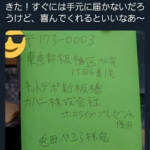 きた！すぐには手元に届かないだろ
うけど、喜んでくれるといいなあ〜
〒173-0003
東京都板橋区加賀
1丁目6番1号
ネットデポ新板橋
カバー株式会社
ホロライブ プレゼント
係分
兎田ぺこら様宛